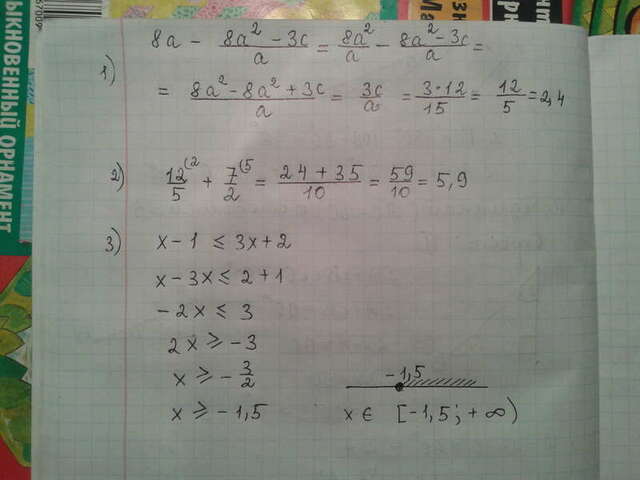 ЫКНОВЕННЫЙ ОРНАМЕНТ
1) 8a - (8a² - 3c)/a = 8a²/a - (8a² - 3c)/a =
= (8a² - 8a² + 3c)/a = 3c/a = (3·12)/15 = 12/5 = 2,4
2) 12/5 (2 + 7/2 (5 = (24 + 35)/10 = 59/10 = 5,9
3) x - 1 ≤ 3x + 2
x - 3x ≤ 2 + 1
- 2x ≤ 3
2x ≥ - 3
x ≥ - 3/2
- 1,5
x ≥ - 1,5
x ∈ [-1,5; + ∞)